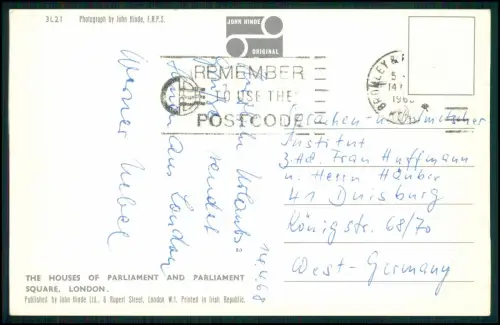 3L21 Photograph by John Hinde, F.R.P.S.
JOHN HINDE
ORIGINAL
REMEMBER
TO USE THE
POSTCODE
BROMLEY &
5 -
14
196
Urlaubs=
sendet
Ihnen aus London
Werner Nebel
14.4.68
Sprachen- u. Dolmetscher
Institut
z.Hd. Frau Huffmann
u. Herrn Häuber
41 Duisburg
Königstr. 68/70
West-Germany
THE HOUSES OF PARLIAMENT AND PARLIAMENT
SQUARE, LONDON.
Published by John Hinde Ltd., 8 Rupert Street, London W.1. Printed in Irish Republic.